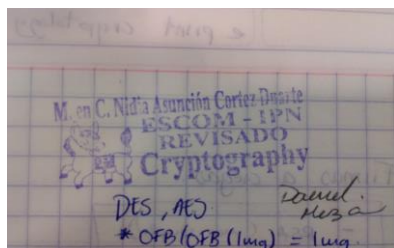 M. en C. Nidia Asunción Cortez Duarte
ESCOM - IPN
REVISADO
Cryptography
DES, AES
Daniel.
Meza
* OFB(OFB(Img) = Img.